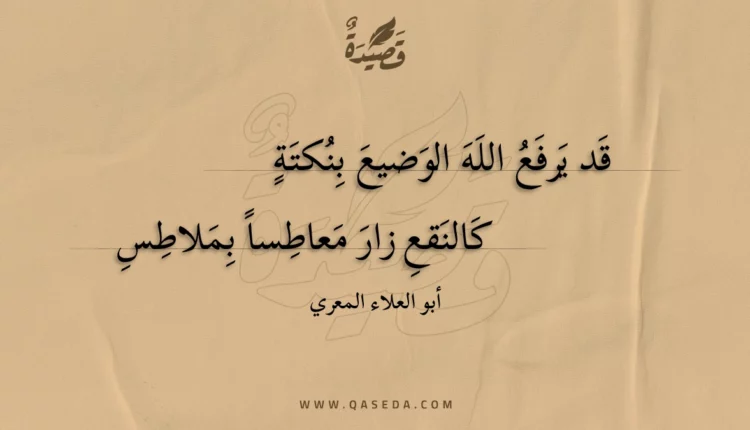 قَصِيدَةٌ
قَد يَرفَعُ اللَهَ الوَضيعَ بِنُكتَةٍ
كَالنَقعِ زارَ مَعاطِساً بِمَلاطِسِ
أبو العلاء المعري
WWW.QASEDA.COM